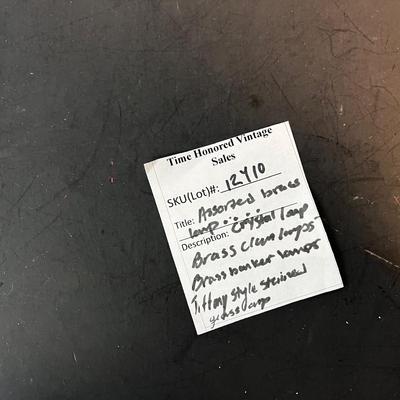 Time Honored Vintage
Sales
SKU(Lot)#: 12410
Title: Assorted brass
lamp
Description: Crystal lamp
Brass clam lamps
Brass banker lamps
Tiffany style stained
glass lamp